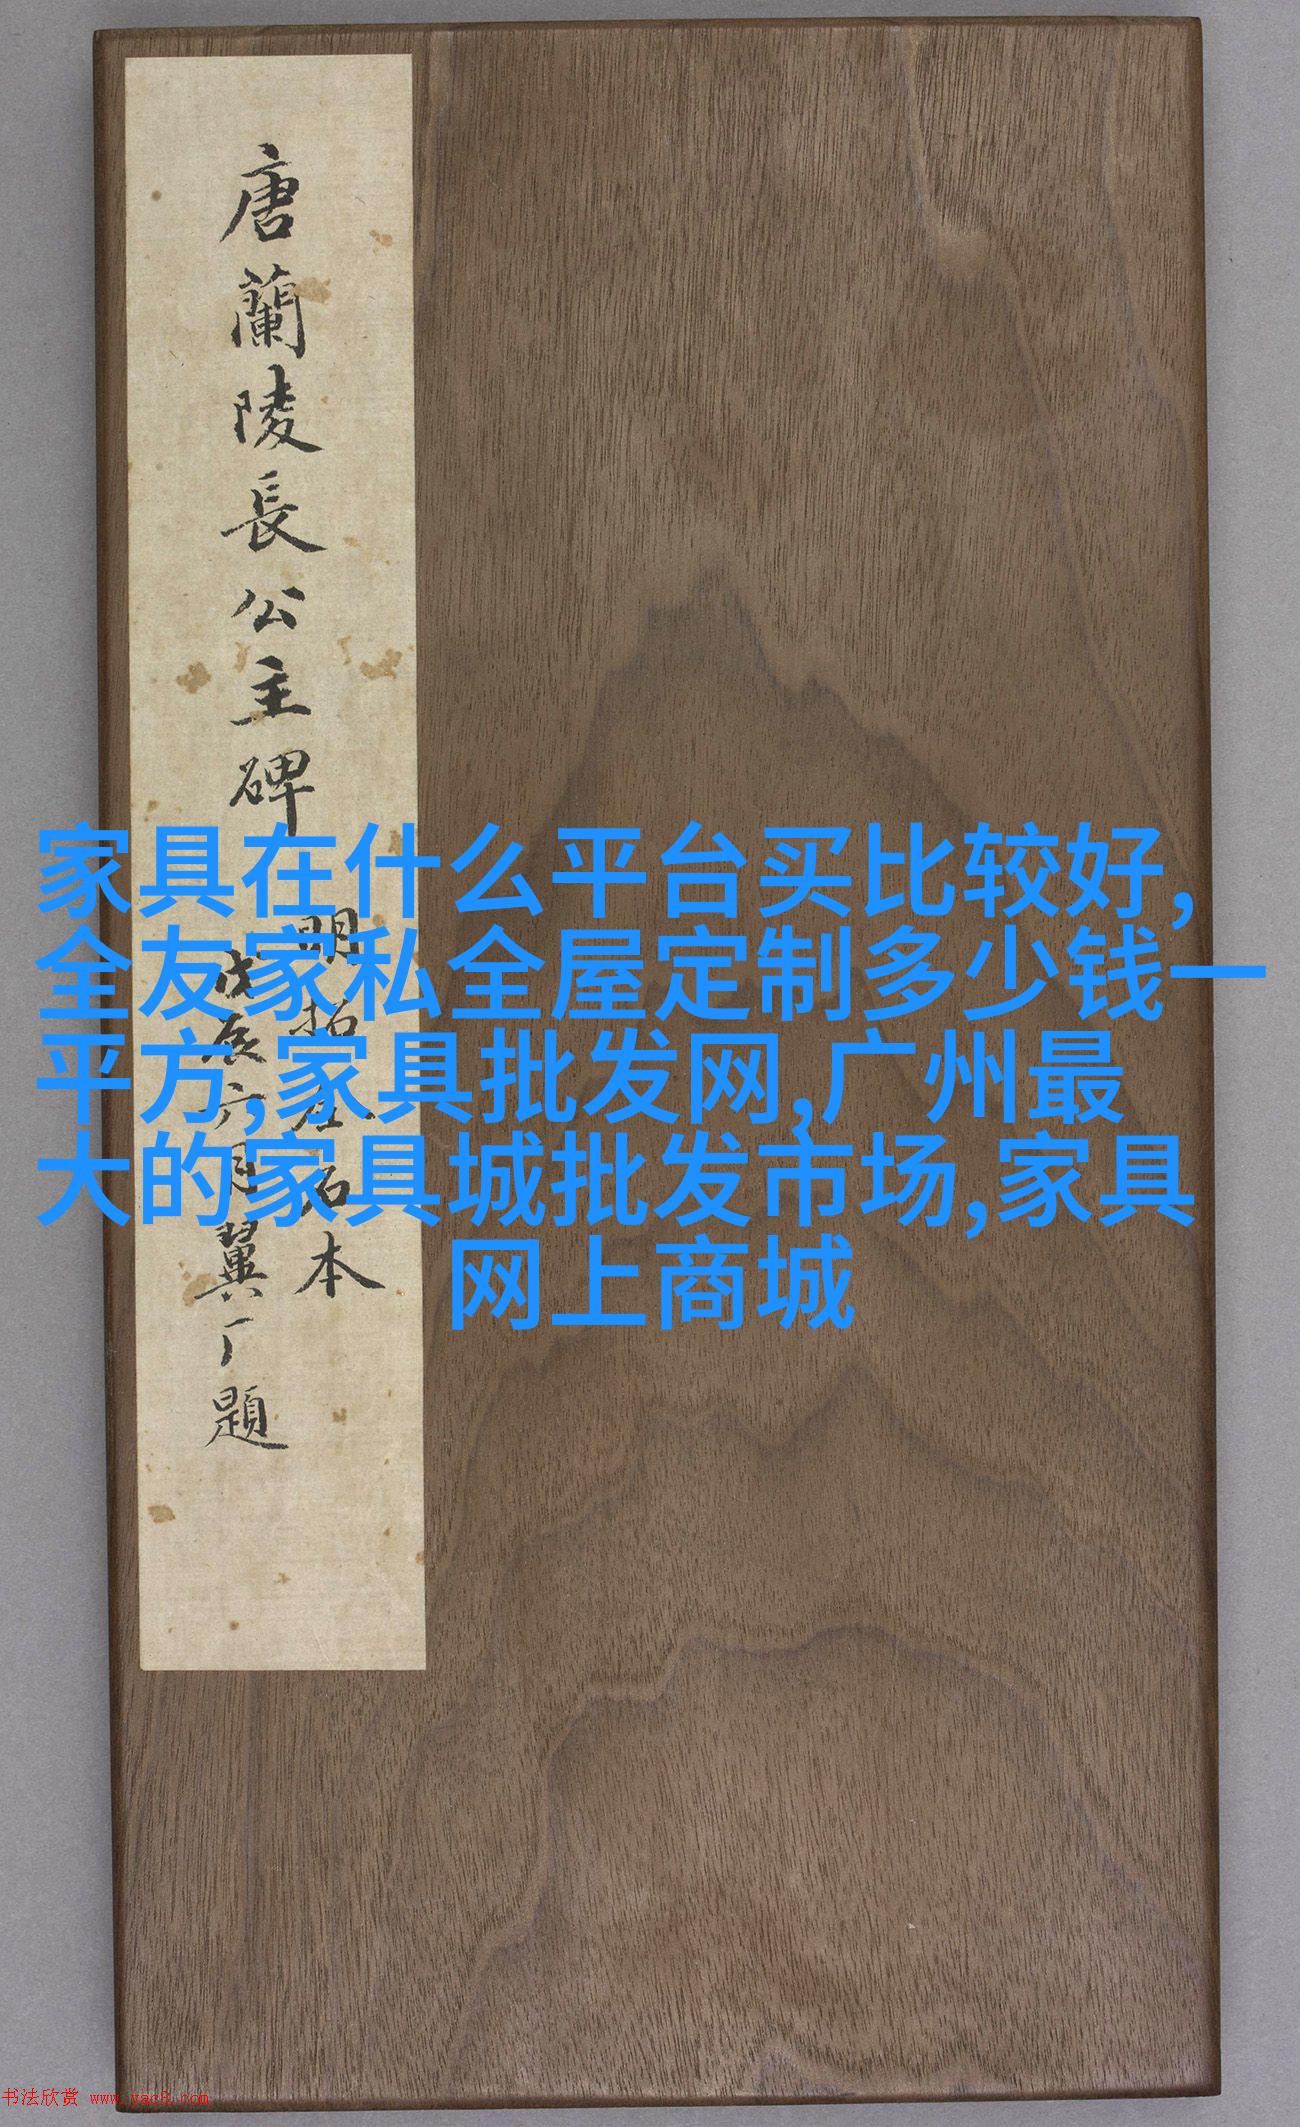 唐蘭陵長公主碑
明拓全石本
戊辰六月翼厂題
家具在什么平台买比较好,
全友家私全屋定制多少钱一
平方,家具批发网,广州最
大的家具城批发市场,家具
网上商城
书法欣赏 www.yac8.com